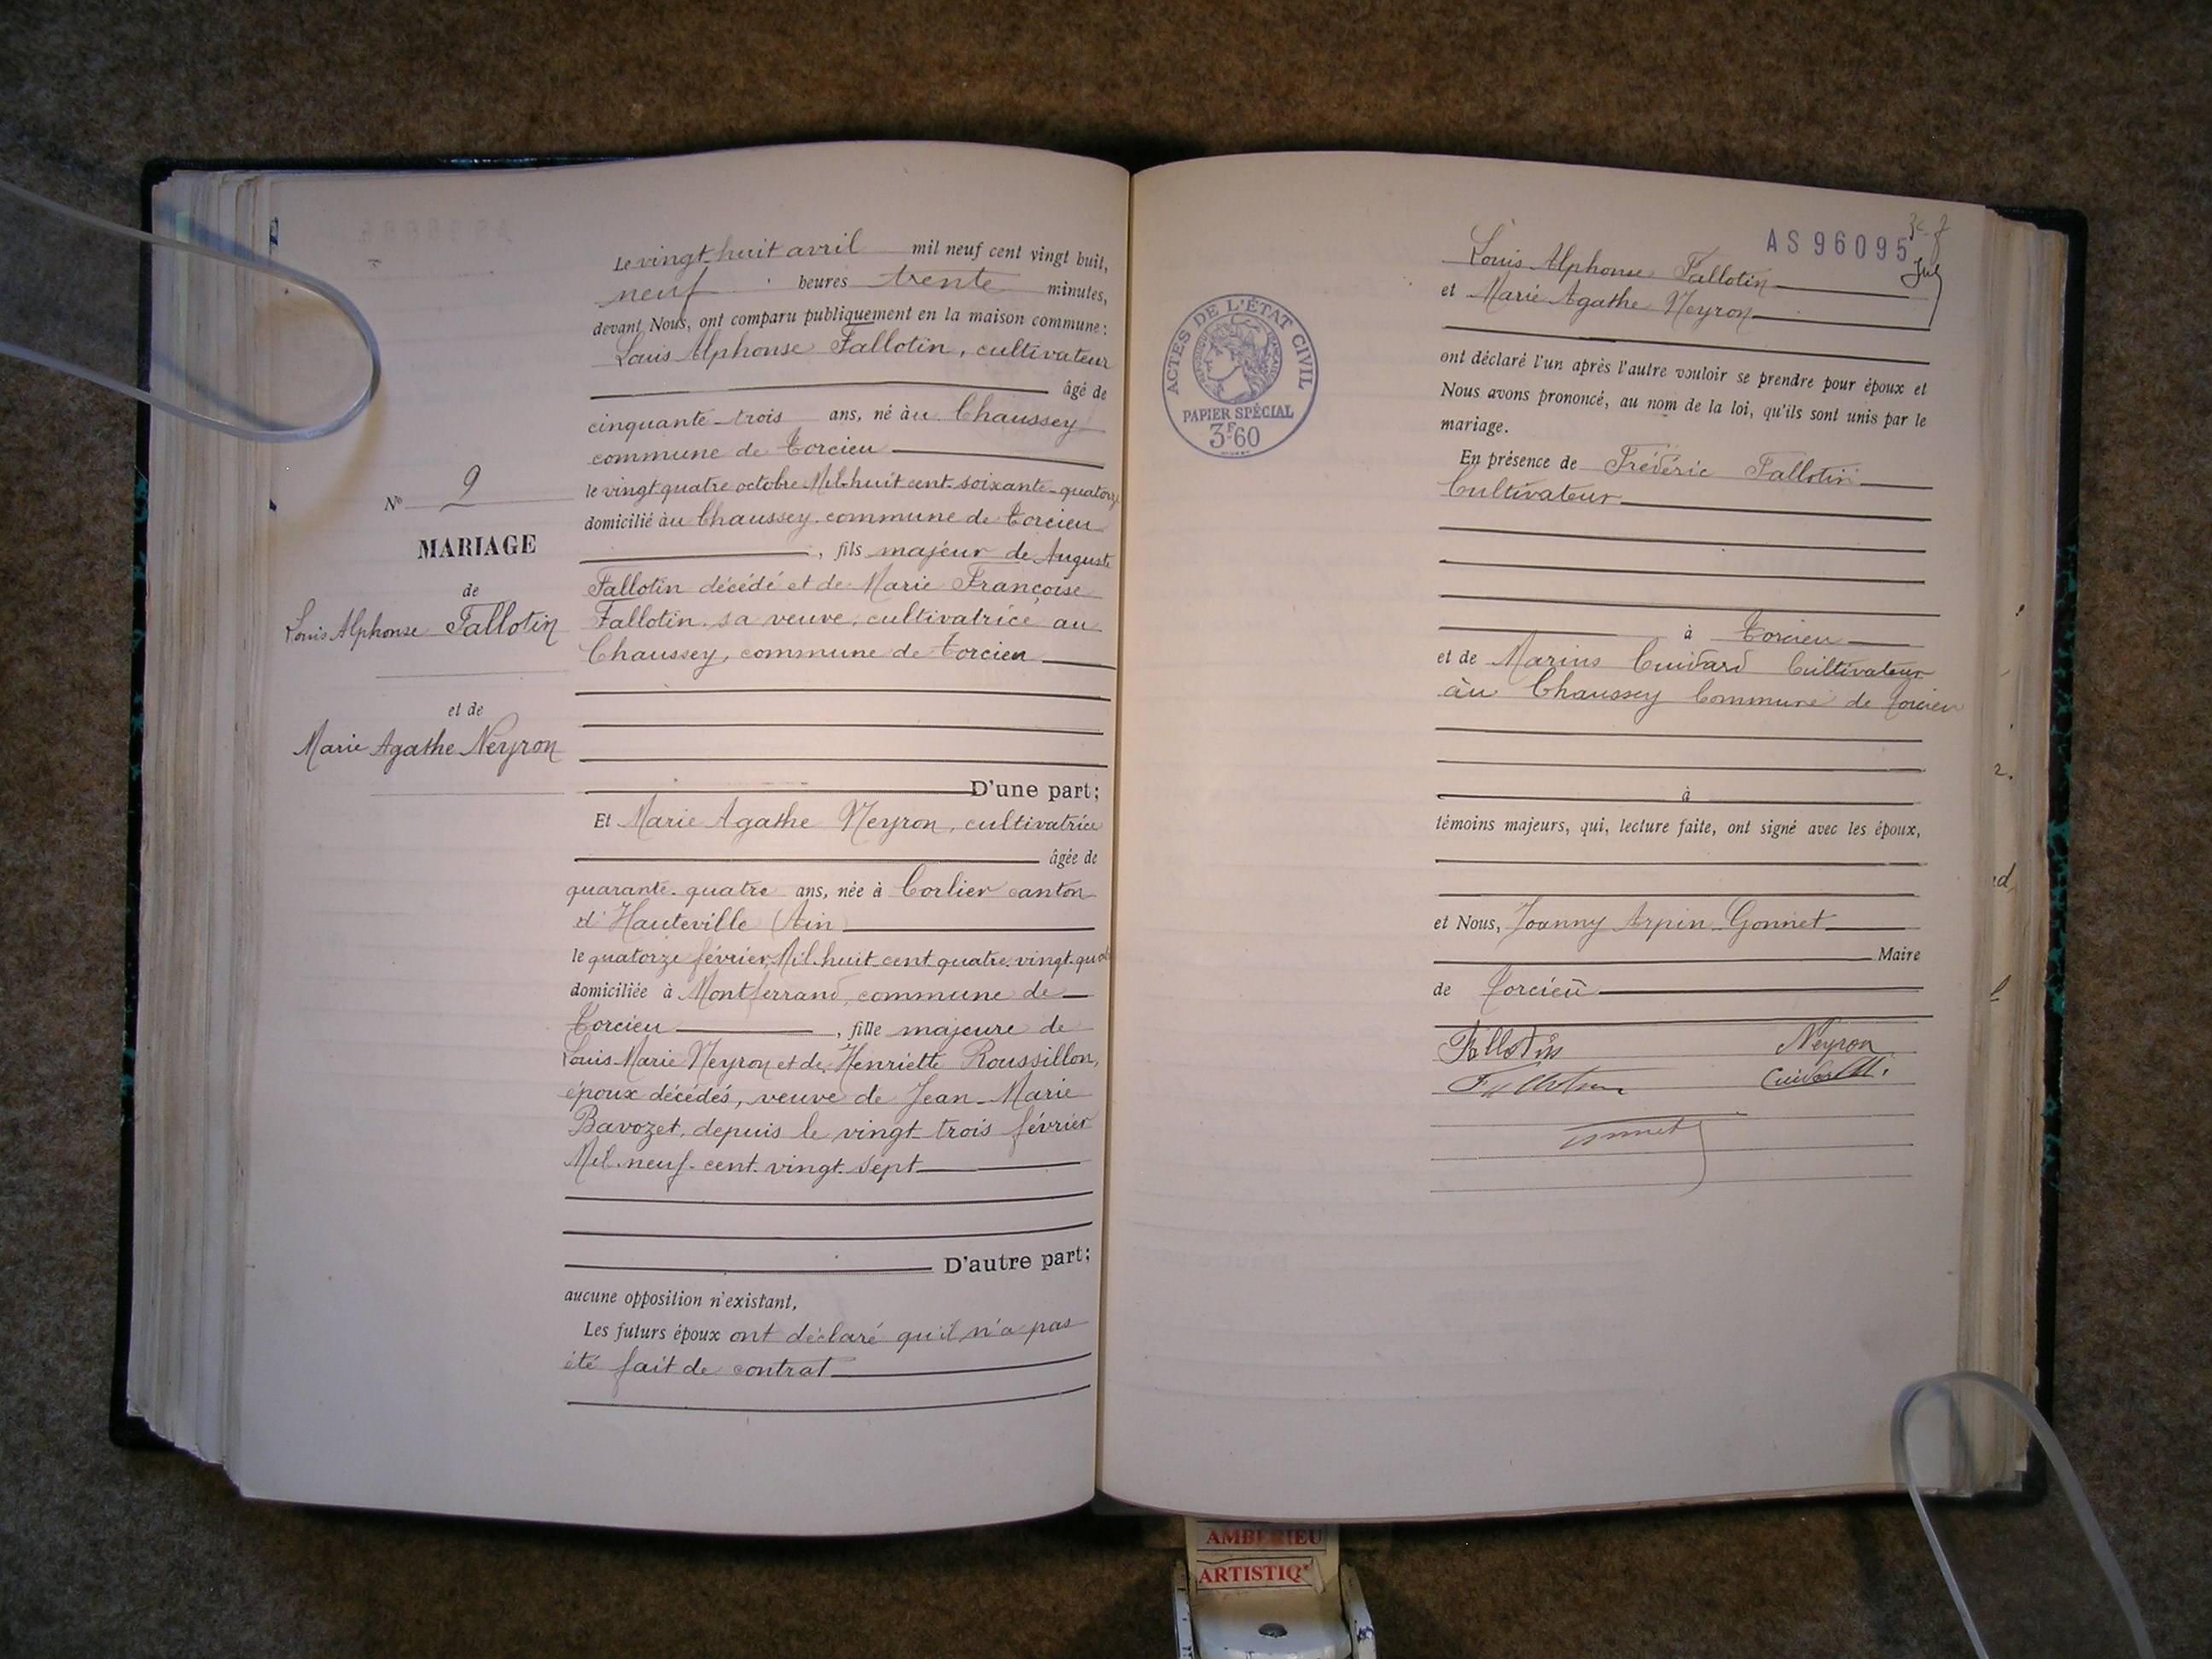 N° 9
MARIAGE
de
Louis Alphonse Fallotin
et de
Marie Agathe Neyron
Le vingt-huit avril mil neuf cent vingt huit,
neuf heures trente minutes,
devant Nous, ont comparu publiquement en la maison commune :
Louis Alphonse Fallotin, cultivateur
âgé de
cinquante-trois ans, né àu Chaussey
commune de Torcieu
le vingt quatre octobre Mil-huit cent-soixante-quatorze
domicilié àu Chaussey commune de Torcieu
, fils majeur de Auguste
Fallotin décédé et de Marie Françoise
Fallotin sa veuve, cultivatrice au
Chaussey, commune de Torcieu
D'une part;
Et Marie Agathe Neyron, cultivatrice
âgée de
quarante-quatre ans, née à Corlier canton
d'Hauteville (Ain)
le quatorze février Mil-huit cent quatre-vingt-quatre
domiciliée à Montferrand, commune de
Torcieu , fille majeure de
Louis-Marie Neyron et de Henriette Roussillon,
époux décédés, veuve de Jean-Marie
Bavozet, depuis le vingt-trois février
Mil-neuf-cent-vingt-sept
D'autre part;
aucune opposition n'existant,
Les futurs époux ont déclaré qu'il n'a pas
été fait de contrat
AS 96095
Louis Alphonse Fallotin
et Marie Agathe Neyron
ACTES DE L'ÉTAT CIVIL
PAPIER SPÉCIAL
3F60
ont déclaré l'un après l'autre vouloir se prendre pour époux et
Nous avons prononcé, au nom de la loi, qu'ils sont unis par le
mariage.
En présence de Frédéric Fallotin
Cultivateur
à Torcieu
et de Marius Cuidard Cultivateur
àu Chaussey Commune de Torcieu
à
témoins majeurs, qui, lecture faite, ont signé avec les époux,
et Nous, Joanny Arpin-Gonnet
Maire
de Torcieu
Fallotin Neyron
Fallotin
Gonnet
AMBERIEU
ARTISTIQ